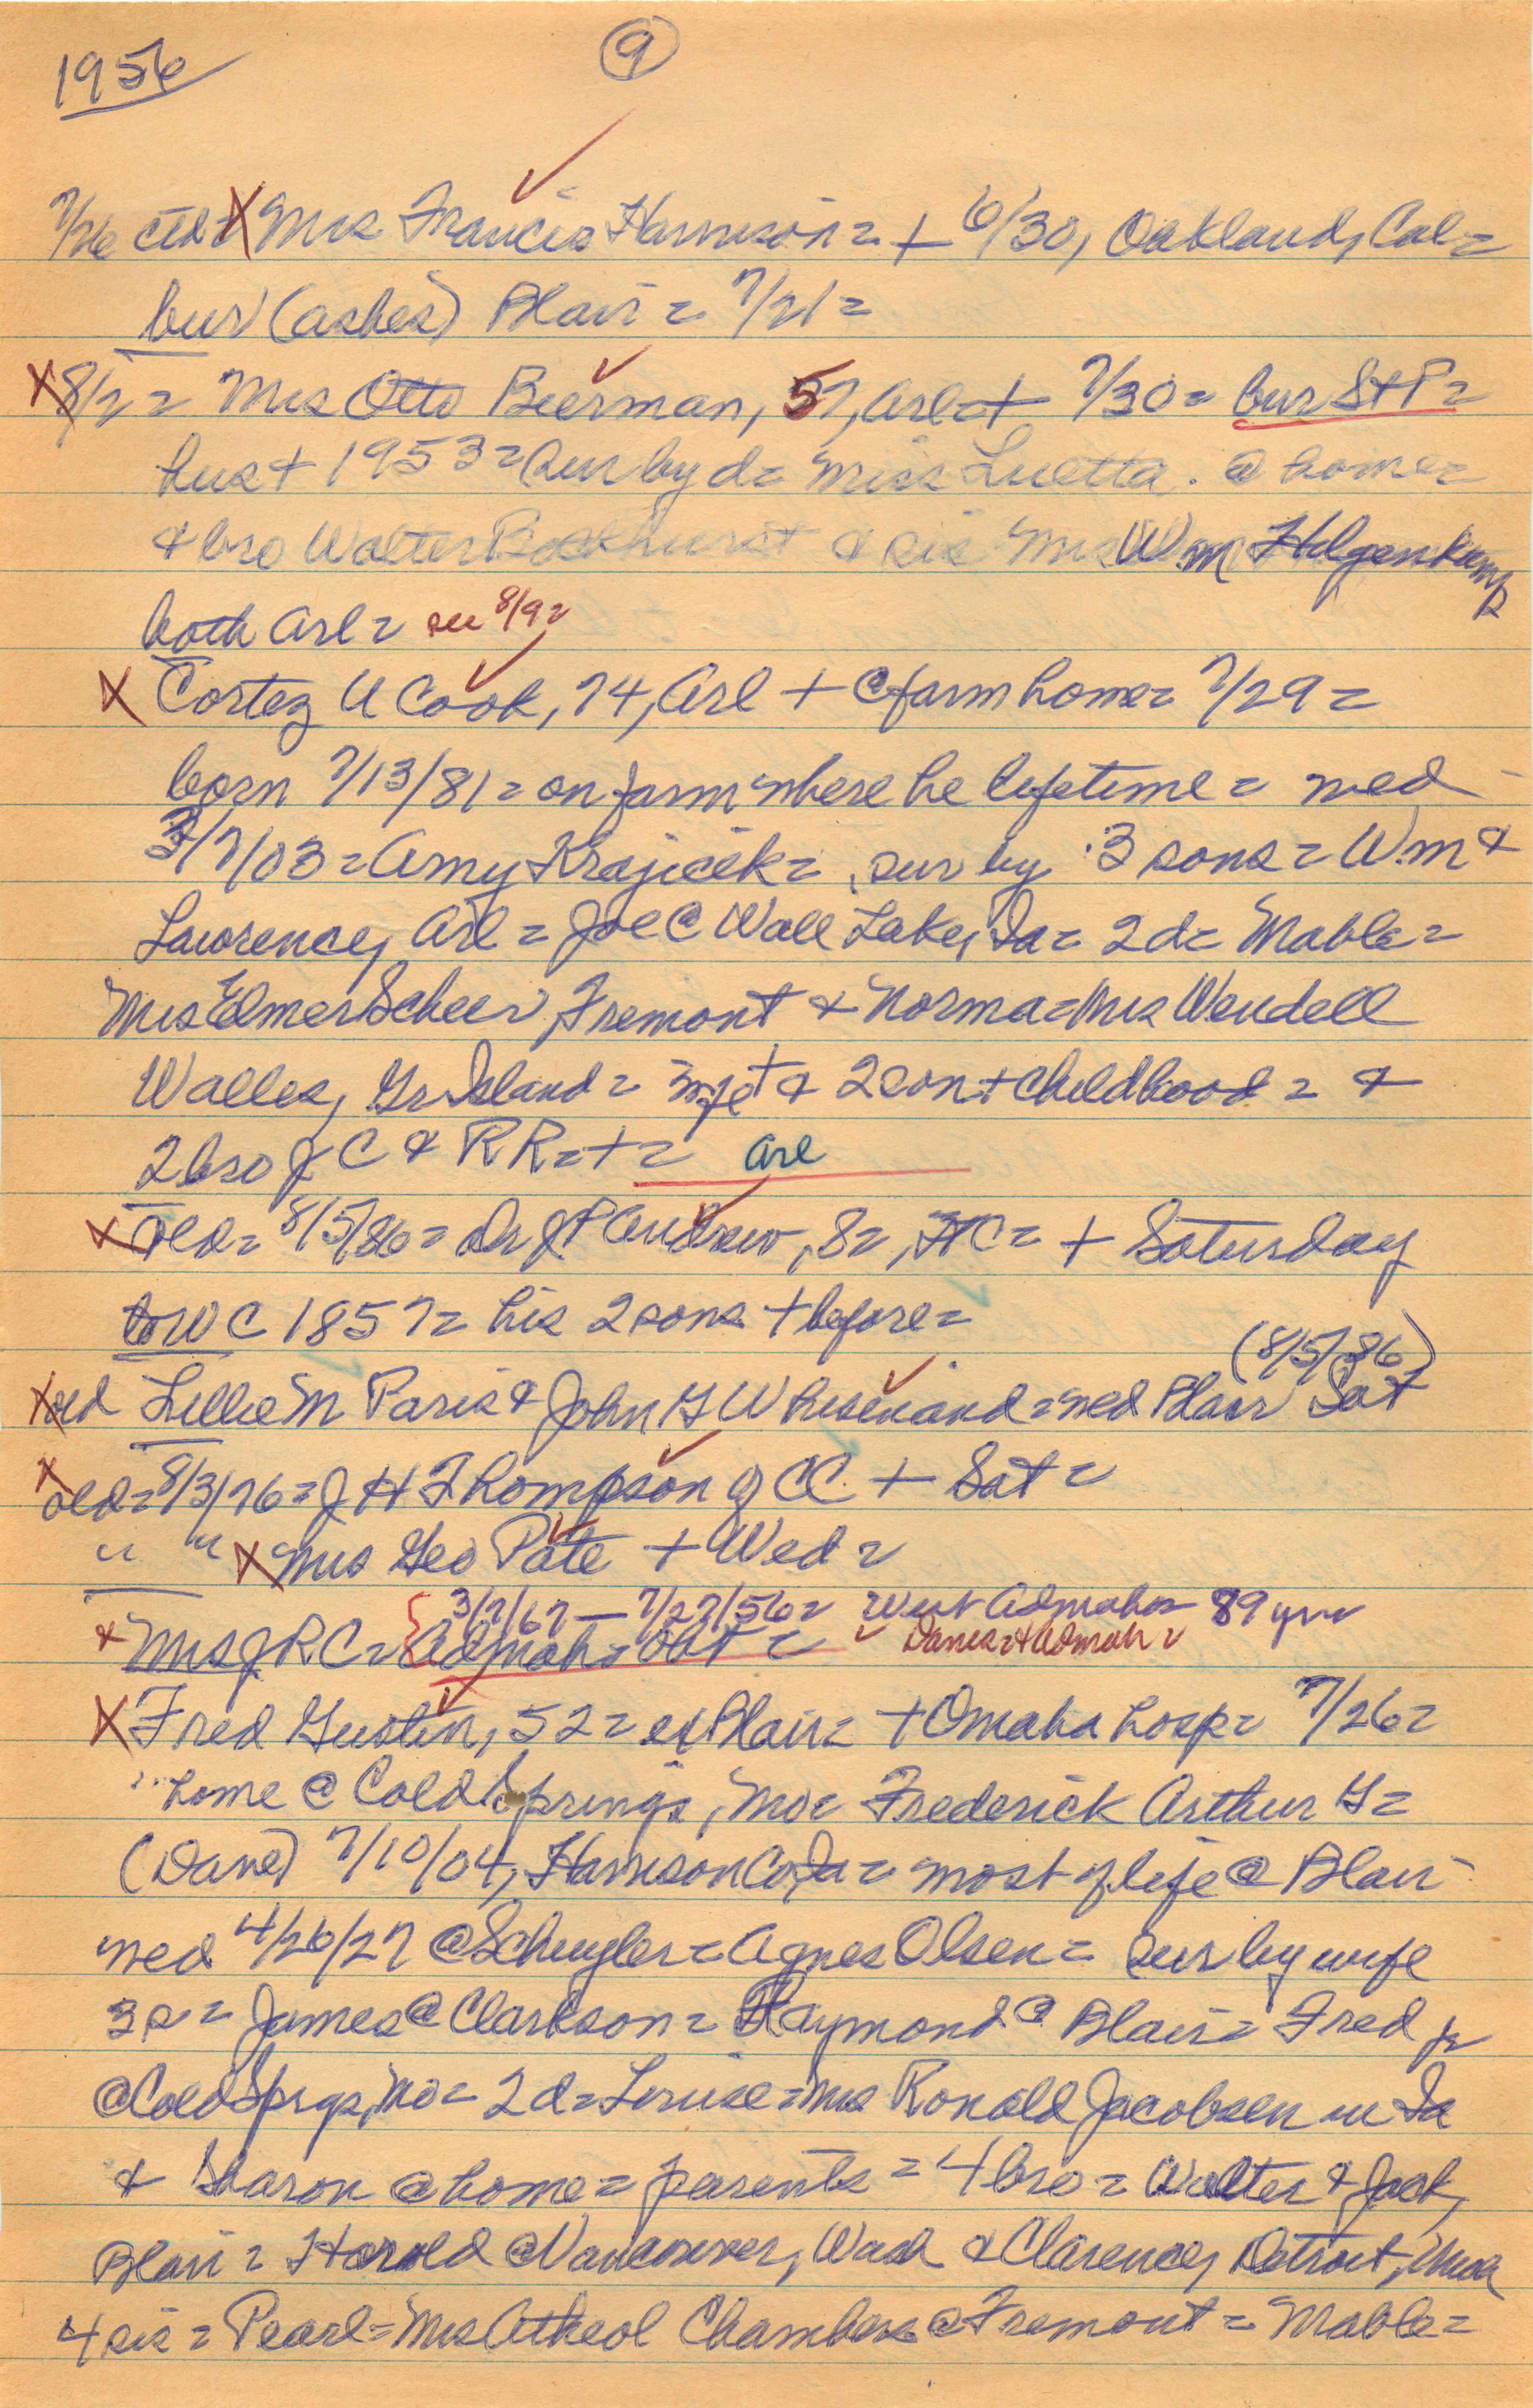 1956
9
7/26 ctd X Mrs Francis Harrison = + 6/30, Oakland, Cal =
bur (ashes) Blair = 7/21 =
X 8/2 = Mrs Otto Beerman, 57, Arl = + 7/30 = bur St P =
hus + 1953 = sur by d = Miss Luetta. @ home =
& bro Walter Bockhurst & sis Mrs Wm Hilgenkamp
both Arl = see 8/9 =
X Cortez U Cook, 74, Arl + @ farm home = 7/29 =
born 7/13/81 = on farm where he lifetime = med
3/7/03 = Amy Krajicek = sur by 3 sons = Wm &
Lawrence, Arl = Joe @ Wall Lake, Ia = 2 d = Mable =
Mrs Elmer Scheer, Fremont & Norma = Mrs Wendell
Walles, Gr Island = wife + & 2 son + childhood = &
2 bro J C & R R = + = Arl
X old = 8/5/86 = Dr J P Andrew, 82, HC = + Saturday
to WC 1857 = his 2 sons + before =
(8/5/86)
X old Lillie M Paris & John G Whisenand = med Blair Sat
X old = 8/3/76 = J H Thompson of CC + Sat =
" " X Mrs Geo Pate + Wed =
3/7/67 — 7/27/56 = West Admah = 89 yrs =
X Mrs J R C = Admah = obt = Danes = + Admah =
X Fred Gustin, 52 = ex Blair = + Omaha hosp = 7/26 =
home @ Cold Springs, Mo = Frederick Arthur G =
(Dane) 7/10/04, Harrison Co, Ia = most of life @ Blair
med 4/26/27 @ Schuyler = Agnes Olsen = sur by wife
3 s = James @ Clarkson = Raymond @ Blair = Fred jr
@ Cold Sprgs, Mo = 2 d = Loruse = Mrs Ronald Jacobsen in Ia
& Sharon @ home = parents = 4 bro = Walter & Jack,
Blair = Harold @ Vancouver, Wash & Clarence, Detroit, Mich
4 sis = Pearl = Mrs Atheol Chambers @ Fremont = Mable =